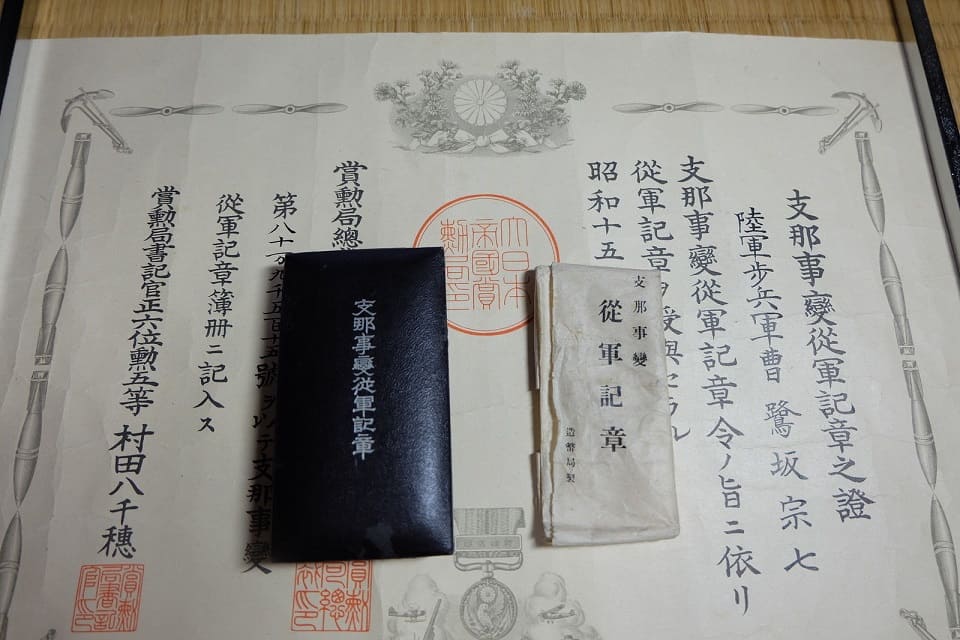 支那事變從軍記章之證
陸軍步兵軍曹 鷺坂宗七
支那事變從軍記章令ノ旨ニ依リ
從軍記章ヲ授與セラル
昭和十五
大日本
帝國賞
勲局印
賞勲局總
第八十
號ヲ以テ支那事變
從軍記章簿册ニ記入ス
賞勲局書記官正六位勲五等 村田八千穗
支那事變從軍記章
支那事變
從軍記章
造幣局製